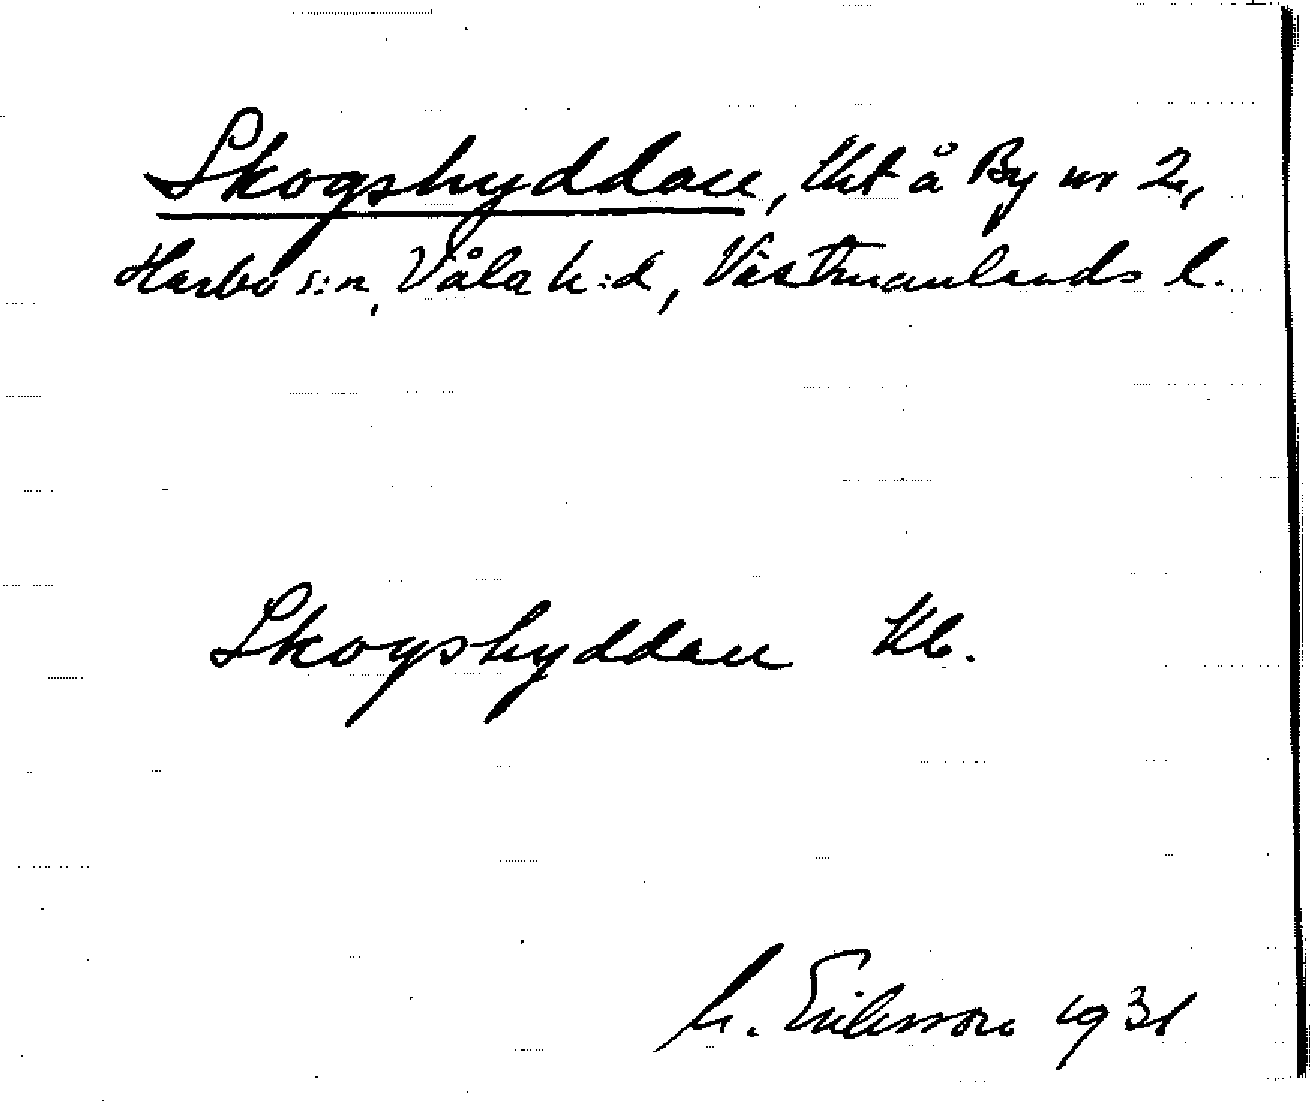 Skogshyddan, Utt å By nr 2,
Harbo s:n, Våla h:d, Västmanlands l.
Skogshyddan Kb.
M. Eriksson 1931